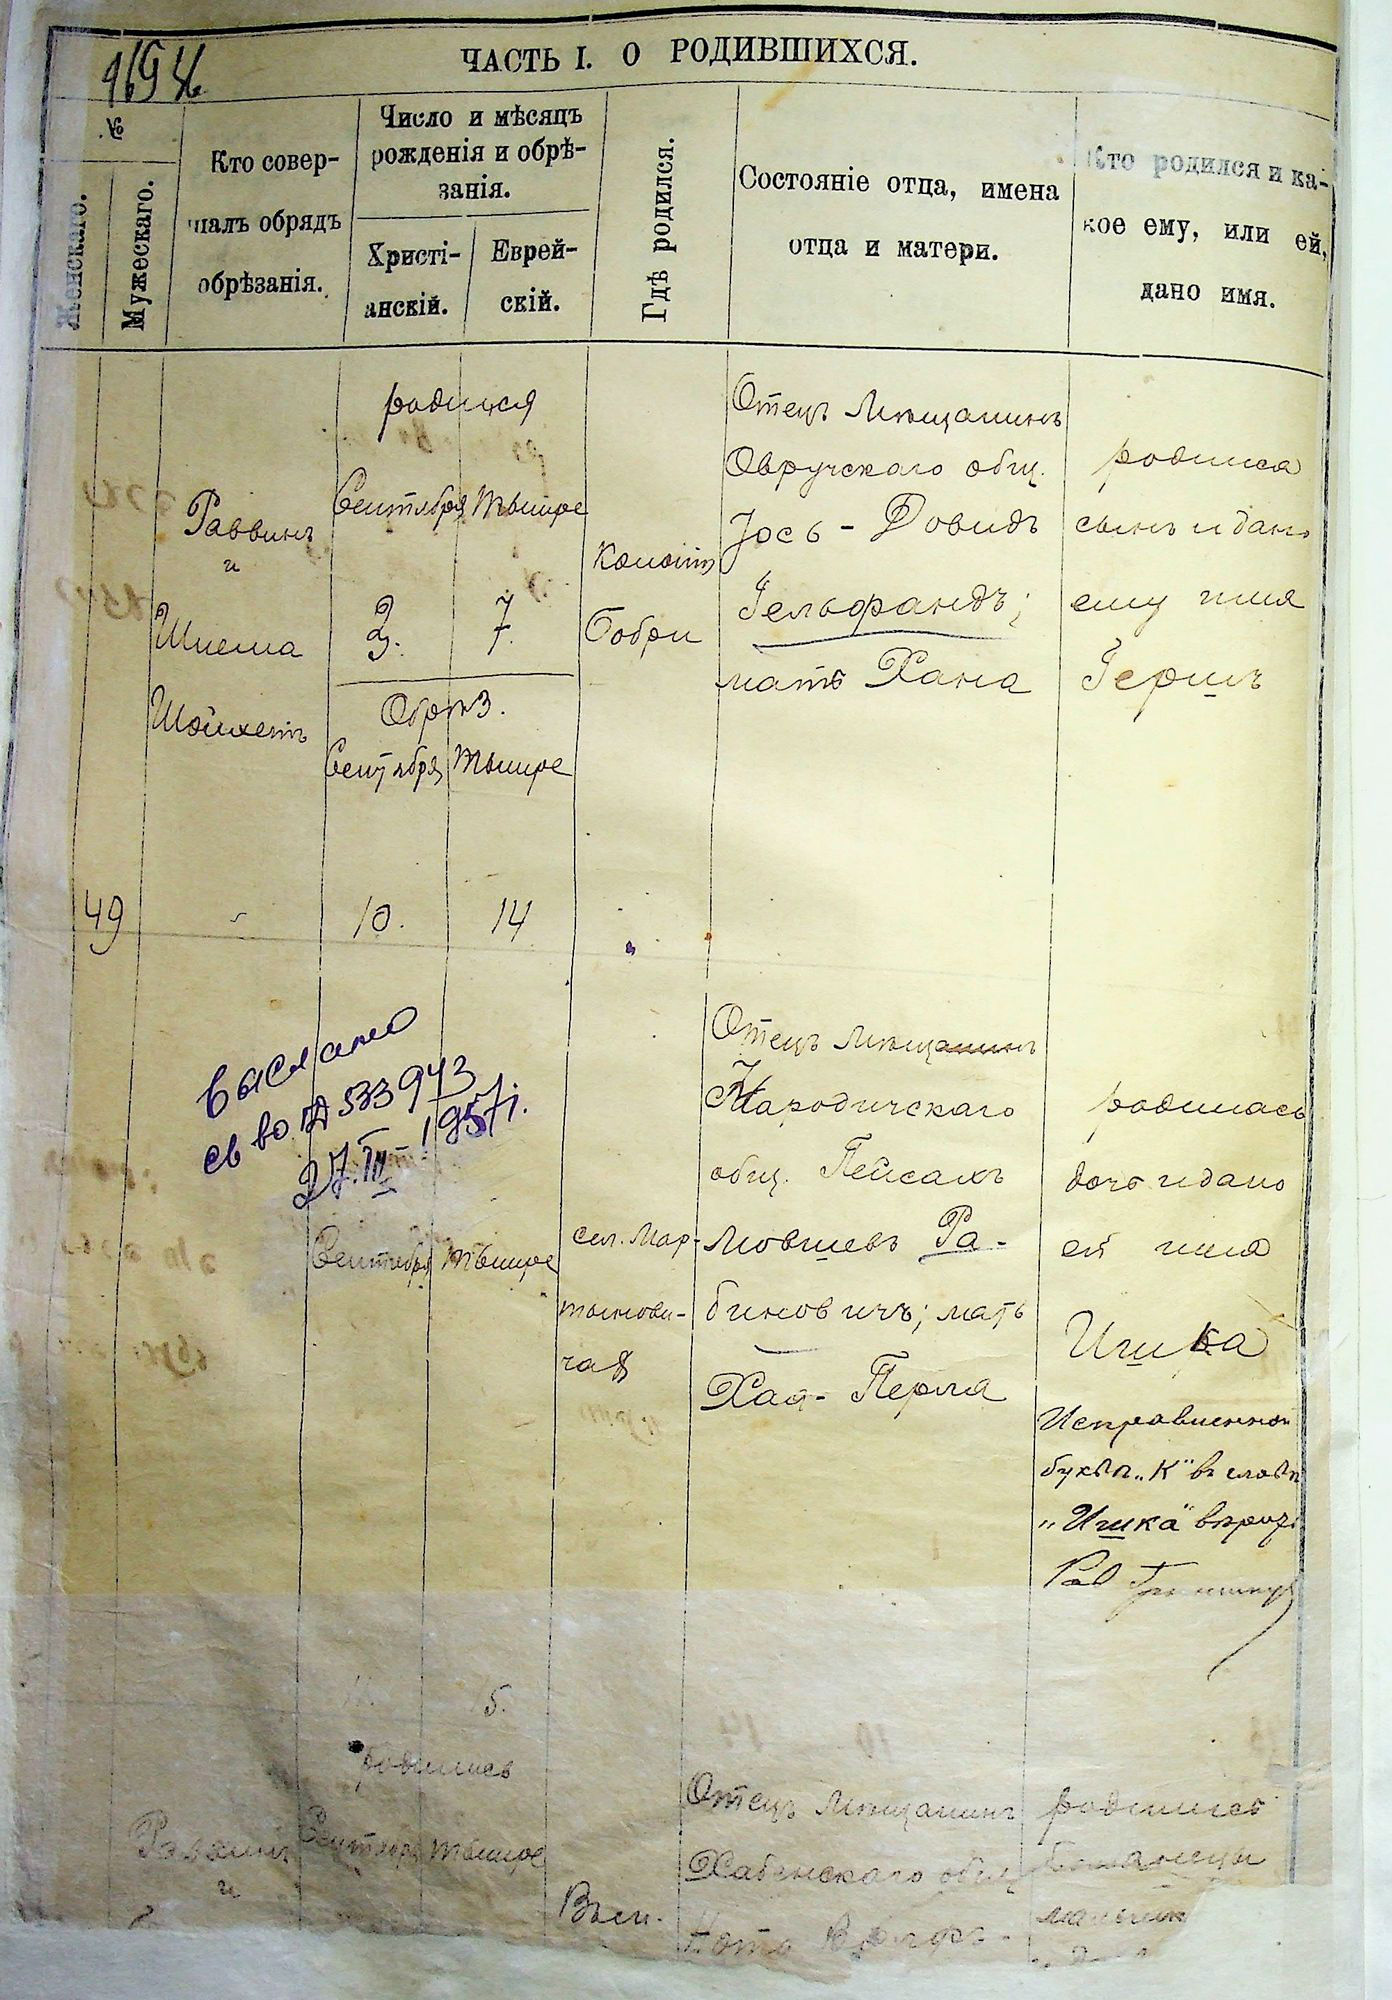 ЧАСТЬ I. О РОДИВШИХСЯ.
№
Женскаго.
Мужескаго.
Кто совер-
шалъ обрядъ
обрѣзанія.
Число и мѣсяцъ
рожденія и обрѣ-
занія.
Христі-
анскій.
Еврей-
скій.
Гдѣ родился.
Состояніе отца, имена
отца и матери.
Кто родился и ка-
кое ему, или ей,
дано имя.
Раввинъ
и
Шлема
Шойхетъ
родился
Сентября Тышре
3. 7.
Обрѣз.
Сентября Тышре
10. 14
Бобри
Отецъ мѣщанинъ
Овручскаго общ.
Іось - Довидъ
Гельфандъ;
мать Хана
родился
сынъ и дано
ему имя
Гершъ
49
Выслано
св во
533973
27.III 1957г.
Сентября Тышре
сел. Мар-
тынови-
чах
Отецъ мѣщанинъ
Народичскаго
общ. Пейсахъ
Мовшевъ Ра-
биновичъ; мать
Хая - Перля
родилась
дочь и дано
ей имя
Ишка
Исправленной
букѣ "К" въ словѣ
"Ишка" вѣрить
Рав
5.
родились
Раввинъ
и
Сентября Тышре
Отецъ мѣщанинъ
Хабенскаго общ
родились
близнецы